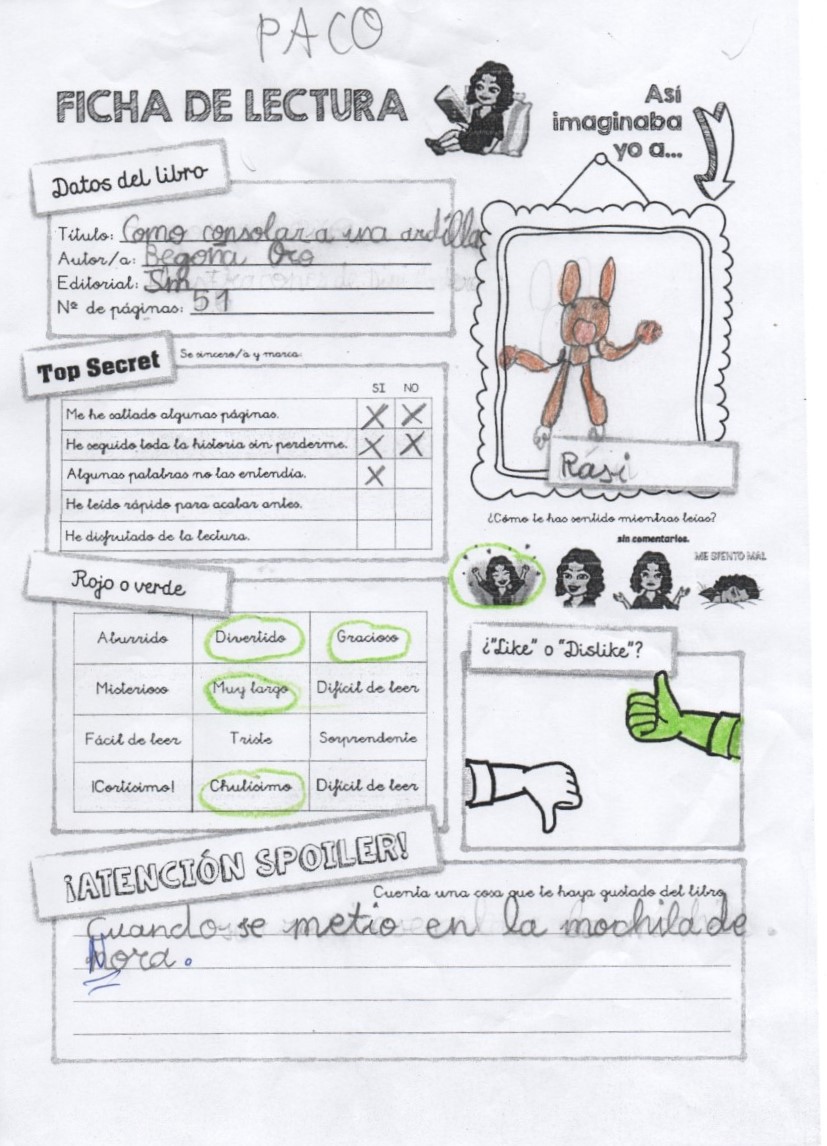 PACO
FICHA DE LECTURA
Así
imaginaba
yo a...
Datos del libro
Título: Como consolar a una ardilla
Autor/a: Begoña Oro
Editorial: Sm
Nº de páginas: 51
Rasi
Top Secret
Se sincero/a y marca:
SI NO
Me he saltado algunas páginas. X X
He seguido toda la historia sin perderme. X X
Algunas palabras no las entendía. X
He leído rápido para acabar antes.
He disfrutado de la lectura.
¿Cómo te has sentido mientras leías?
sin comentarios.
ME SIENTO MAL
Rojo o verde
Aburrido Divertido Gracioso
Misterioso Muy largo Difícil de leer
Fácil de leer Triste Sorprendente
¡Cortísimo! Chulísimo Difícil de leer
¿"Like" o "Dislike"?
¡ATENCIÓN SPOILER!
Cuenta una cosa que te haya gustado del libro
Cuando se metio en la mochila de
Nora.